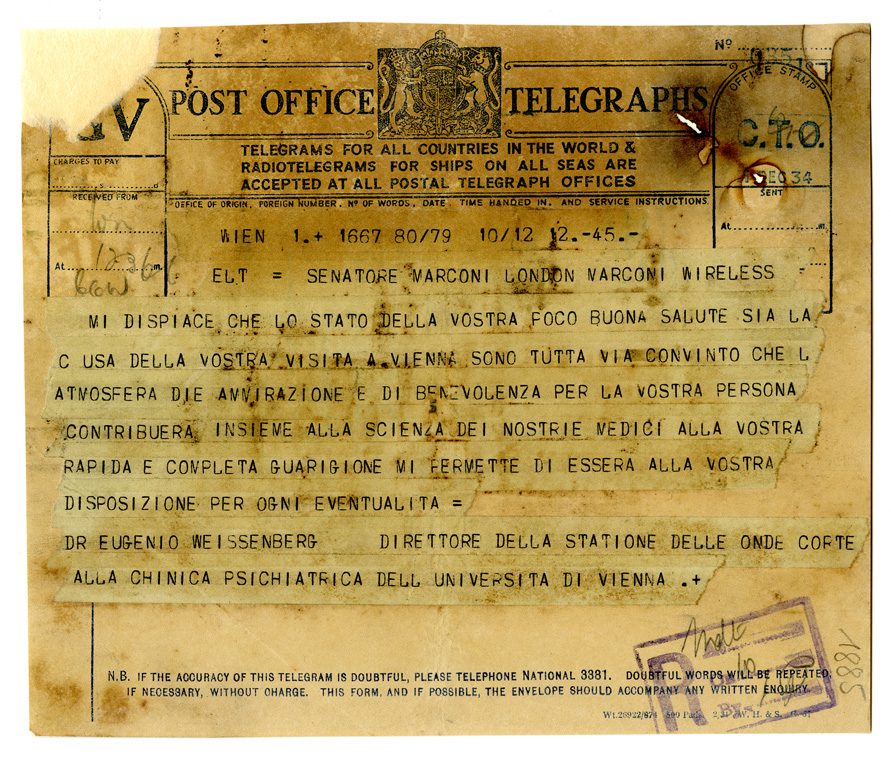 Nº
POST OFFICE TELEGRAPHS
OFFICE STAMP
C.T.O.
DEC 34
TELEGRAMS FOR ALL COUNTRIES IN THE WORLD &
RADIOTELEGRAMS FOR SHIPS ON ALL SEAS ARE
ACCEPTED AT ALL POSTAL TELEGRAPH OFFICES
CHARGES TO PAY
s. d
RECEIVED FROM
SENT
OFFICE OF ORIGIN, FOREIGN NUMBER, Nº OF WORDS, DATE, TIME HANDED IN, AND SERVICE INSTRUCTIONS.
At m.
At m.
WIEN 1.+ 1667 80/79 10/12 12.-45.-
ELT = SENATORE MARCONI LONDON MARCONI WIRELESS =
MI DISPIACE CHE LO STATO DELLA VOSTRA FOCO BUONA SALUTE SIA LA
C USA DELLA VOSTRA VISITA A VIENNA SONO TUTTA VIA CONVINTO CHE L
ATMOSFERA DIE AMVIRAZIONE E DI BENEVOLENZA PER LA VOSTRA PERSONA
CONTRIBUERA INSIEME ALLA SCIENZA DEI NOSTRIE MEDICI ALLA VOSTRA
RAPIDA E COMPLETA GUARIGIONE MI PERMETTE DI ESSERA ALLA VOSTRA
DISPOSIZIONE PER OGNI EVENTUALITA =
DR EUGENIO WEISSENBERG DIRETTORE DELLA STATIONE DELLE ONDE CORTE
ALLA CHINICA PSICHIATRICA DELL UNIVERSITA DI VIENNA .+
1885
N.B. IF THE ACCURACY OF THIS TELEGRAM IS DOUBTFUL, PLEASE TELEPHONE NATIONAL 3381. DOUBTFUL WORDS WILL BE REPEATED,
IF NECESSARY, WITHOUT CHARGE. THIS FORM, AND IF POSSIBLE, THE ENVELOPE SHOULD ACCOMPANY ANY WRITTEN ENQUIRY.
By
Wt.26922/874 500 Pads. W. H. & S.